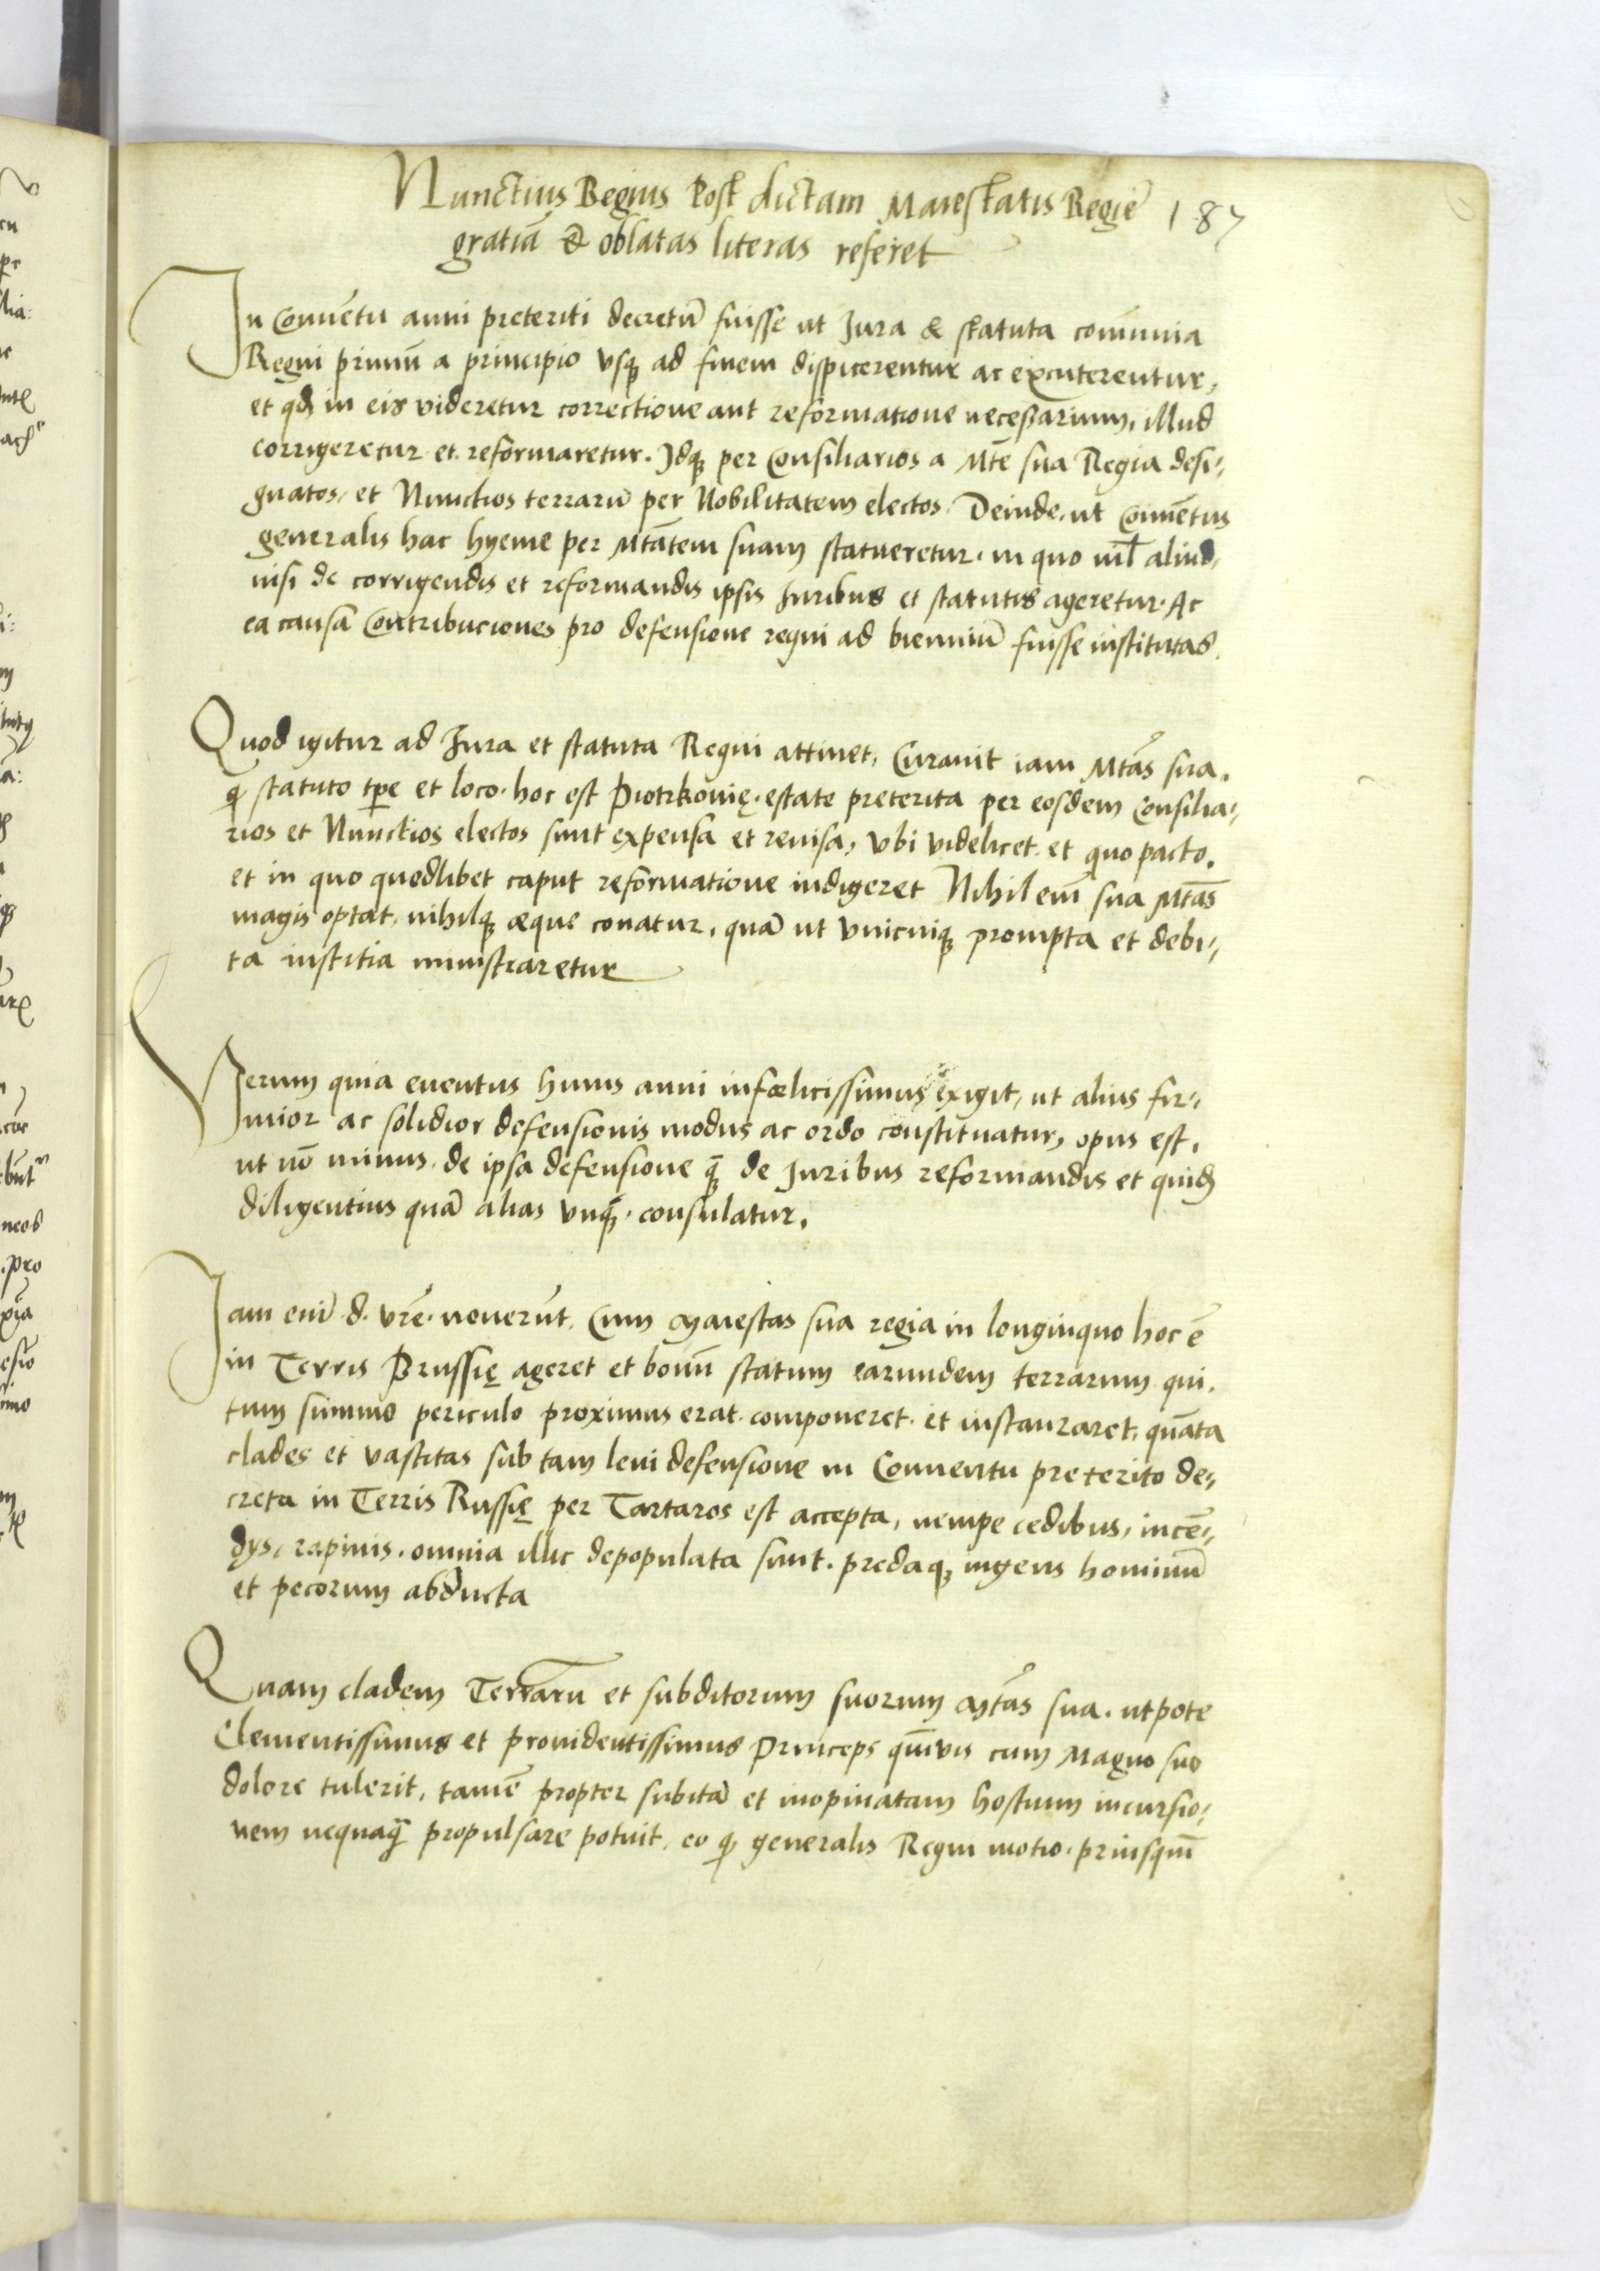 Nunctius Regius Post dictam Maiestatis Regie
187
gratiā & oblatas literas referet
In Conuētu anni preteriti decretū fuisse ut Jura & statuta com̄unia
Regni primū a principio vsq̨ ad finem dispicerentur ac excuterentur,
et qd̨ in eis videretur correctione aut reformatione necessarium, illud
corrigeretur et reformaretur. Idq̨ per Consiliarios a Mte sua Regia desi-
gnatos, et Nunctios terrarū per Nobilitatem electos. Deinde, ut Conuētus
generalis hac hyeme per Mtātem suam statueretur. in quo nil aliud,
nisi de corrigendis et reformandis ipsis Juribus et statutis ageretur. Ac
ea causa Contribuciones pro defensione regni ad bienniū fuisse institutas.
Quod igitur ad Jura et statuta Regni attinet, Curauit iam Mtās sua.
q̨ statuto tpe et loco. hoc est Piotrkouię. estate preterita per eosdem Consilia-
rios et Nunctios electos sunt expensa et reuisa, vbi videlicet et quo pacto.
et in quo quedlibet caput reformatione indigeret Nihil eīm sua Mtās
magis optat, nihilq̨ æque conatur, quā ut vnicuiq̨ prompta et debi-
ta iustitia ministraretur
Verum quia euentus huius anni infœlicissimus exigit, ut alius fir-
mior ac solidior defensionis modus ac ordo constituatur, opus est,
ut nō minus de ipsa defensione q̨̄ de Juribus reformandis et quid̨
diligentius quā alias vnq̨̄. consulatur.
Jam enī d. vrē. nouerūt. Cum Maiestas sua regia in longinquo hoc ē
in Terris Prussię ageret et bonū statum earundem terrarum qui.
tum summo periculo proximus erat. componeret. et instauraret, quāta
clades et vastitas sub tam leui defensione in Conuentu preterito de-
creta in Terris Russię per Tartaros est accepta, nempe cedibus, incē-
dys, rapinis. omnia illic depopulata sunt. predaq̨ ingens hominū
et pecorum abducta
Quam cladem Terrarū et subditorum suorum Mtās sua. utpote
Clementissimus et prouidentissimus Princeps quīuis cum Magno suo
dolore tulerit, tamē propter subitā et inopinatam hostium incursio-
nem nequaq̨̄ propulsare potuit. eo q̨ generalis Regni motio. priusquā